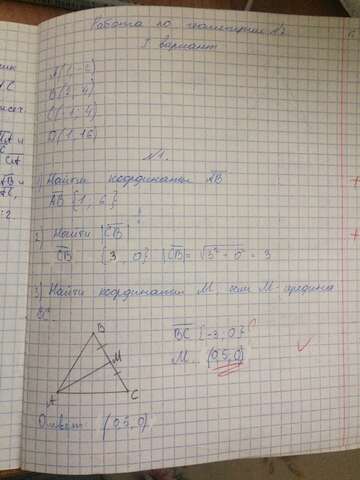 Работа по геометрии №2
1 вариант
A(1;-2)
B(2; 4)
C(-1; 4)
D(1; 16)
№1.
1) Найти координаты AB
AB {1; 6}
2) Найти |CB|
CB {3; 0} |CB| = √3² + 0² = 3
3) Найти координаты M, если M - середина
BC.
BC {-3; 0}
M (0,5; 0)
B
M
A
C
Ответ: (0,5; 0)